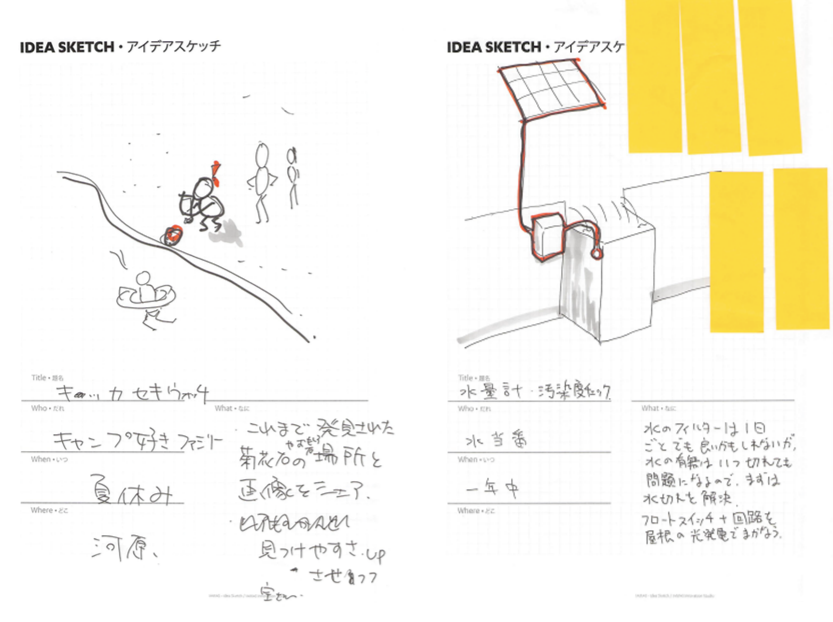 IDEA SKETCH・アイデアスケッチ
Title・題名
キッカセキウォッチ
Who・だれ
キャンプ好きファミリー
When・いつ
夏休み
Where・どこ
河原、
What・なに
・これまで発見された
菊花石の場所と
画像をシェア、
見つけやすさ、up
させ
IDEA SKETCH・アイデアスケ
Title・題名
水量計・汚染度チェック
Who・だれ
水当番
When・いつ
一年中
Where・どこ
What・なに
水のフィルターは1日
ごとでも良いかもしれないが、
水の有無はいつ切れても
問題になるので、まずは
水切れを解決、
フロートスイッチ+回路を
屋根の光発電でまかなう。